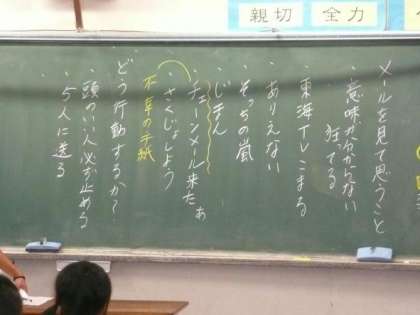 親切
全力
メールを見て思うこと
・意味が分からない
狂ってる
・東海TVこまる
・ありえない
・そっちの嵐
・じまん
・チェーンメール来たぁ
・さくじょしよう
不幸の手紙
どう行動するか?
・頭のいい人必が止める
・5人に送る